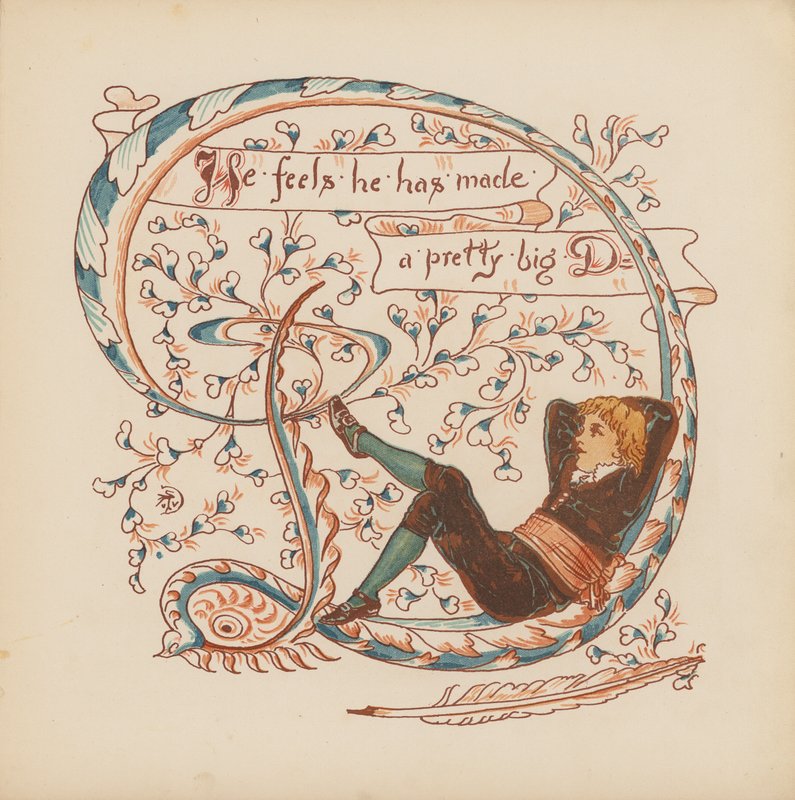 He·feels·he·has·made·
a·pretty·big·D=